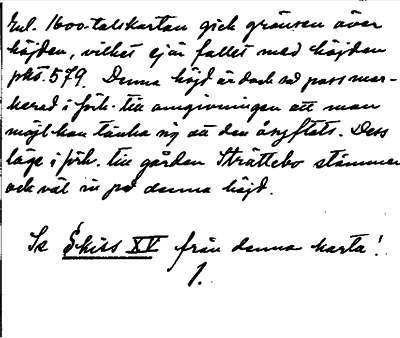 Enl. 1600-talskartan gick gränsen över
höjden, vilket ej är fallet med höjden
pkt. 579. Denna höjd är dock så pass mar-
kerad i förh. till omgivningen att man
möjl. kan tänka sig att den åsyftats. Dess
läge i förh. till gården Strättebo stämmer
och väl in på denna höjd.
Se Skiss XV från denna karta!
1.